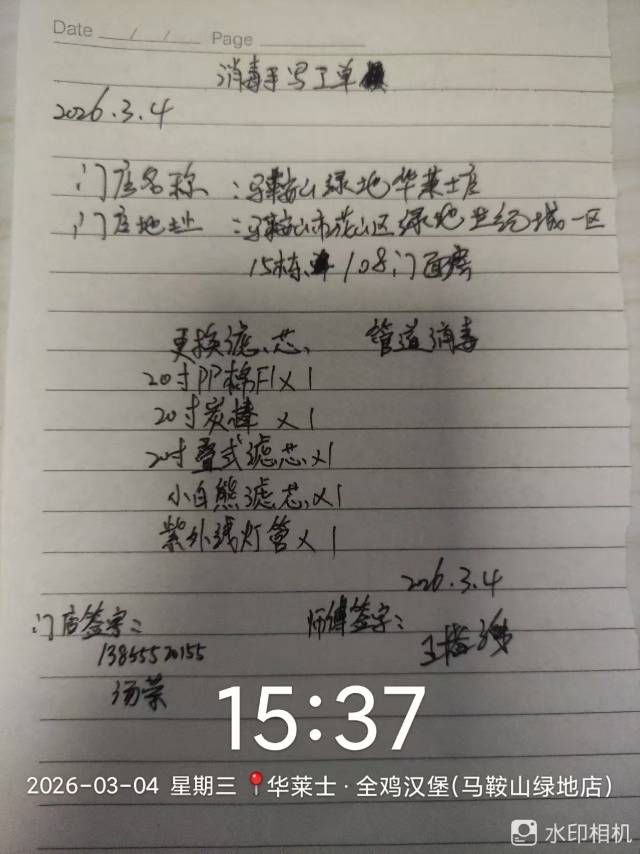 Date / / Page
消毒手写工单
2026.3.4
门店名称：马鞍山绿地华莱士店
门店地址：马鞍山市花山区绿地世纪城一区
15栋 108门面房
更换滤芯、 管道消毒
20寸PP棉F1×1
20寸炭棒 ×1
20寸叠式滤芯×1
小白熊滤芯×1
紫外线灯管×1
2026.3.4
门店签字： 师傅签字：
13855520155 王
汤荣
15:37
2026-03-04 星期三 华莱士·全鸡汉堡(马鞍山绿地店)
水印相机